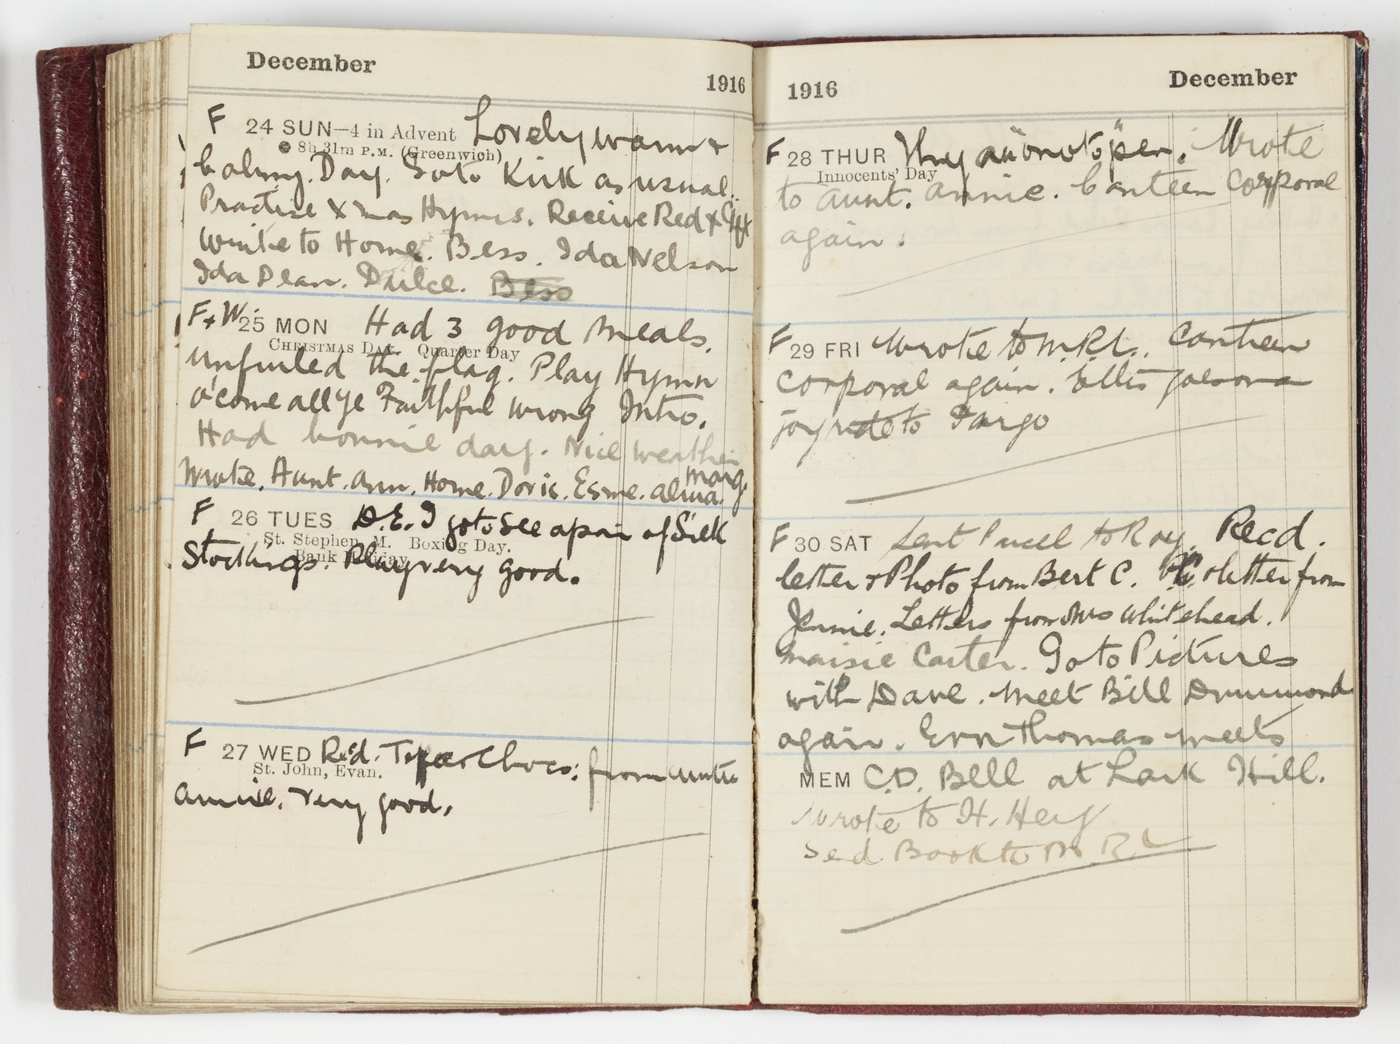 December
1916
F 24 SUN—4 in Advent Lovely warm &
8h 31m P.M. (Greenwich)
balmy. Day. Go to Kirk as usual.
Practise Xmas Hymns. Receive Red X Gift
Write to Home. Bess. Ida Nelson
Ida Dean. Dulce. Bess
F+W. 25 MON Had 3 good meals.
CHRISTMAS DAY. Quarter Day
unfurled the flag. Play Hymn
O'come all ye Faithful wrong Intro.
Had bonnie day. Nice weather
Wrote. Aunt. Ann. Home. Doris. Esme. alma. marg.
F 26 TUES D.E. I go to see a pair of Silk
St. Stephen, M. Boxing Day.
Bank Holiday
Stockings. Play very good.
F 27 WED Rcd. Topper Chocs: from Auntie
St. John, Evan.
annie. Very good.
1916
December
F 28 THUR open. Wrote
Innocents' Day
to aunt. annie. Canteen Corporal
again.
F 29 FRI Wrote to M.R.L. Canteen
corporal again. Ellis
joyride to Fargo
F 30 SAT Sent Parcel to Roy. Recd.
letter & Photo from Bert C. & letter from
Jennie. Letters from Mrs Whitehead.
Maisie Carter. Go to Pictures
with Dave. Meet Bill Drummond
again. Ern Thomas meets
MEM C.D. Bell at Lark Hill.
Wrote to H. Hey
Send Book to M.R.L